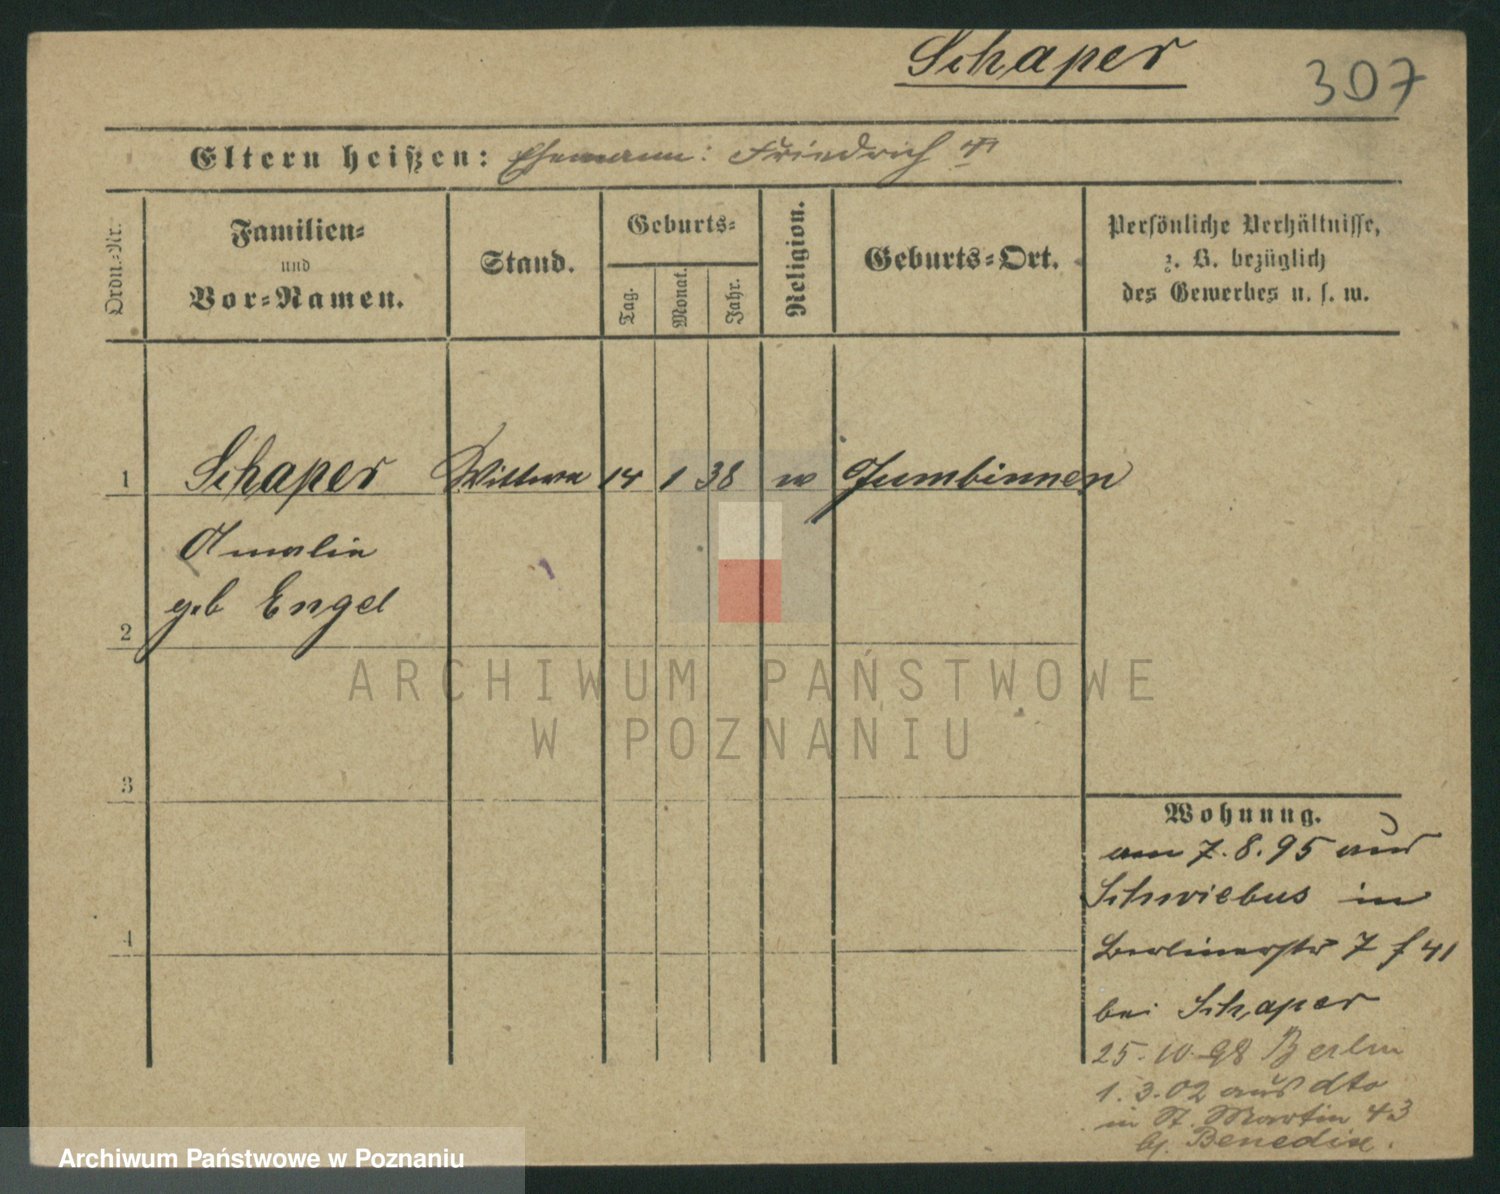 Schaper
307
Eltern heißen: Ehemann: Friedrich
Ordn.-Nr.
Familien-
und
Vor-Namen.
Stand.
Geburts-
Tag.
Monat.
Jahr.
Religion.
Geburts-Ort.
Persönliche Verhältnisse,
z. B. bezüglich
des Gewerbes u. s. w.
1 Schaper Wittwe 14 1 38 Gumbinnen
Amalie
geb Engel
2
ARCHIWUM PAŃSTWOWE
W POZNANIU
3
Wohnung.
am 7.8.95 aus
Schwiebus in
4
Berlinerstr 7 f 41
bei Schaper
25.10.98 Berlin
1.3.02 aus dto
in St. Martin 43
bj. Benedix.
Archiwum Państwowe w Poznaniu